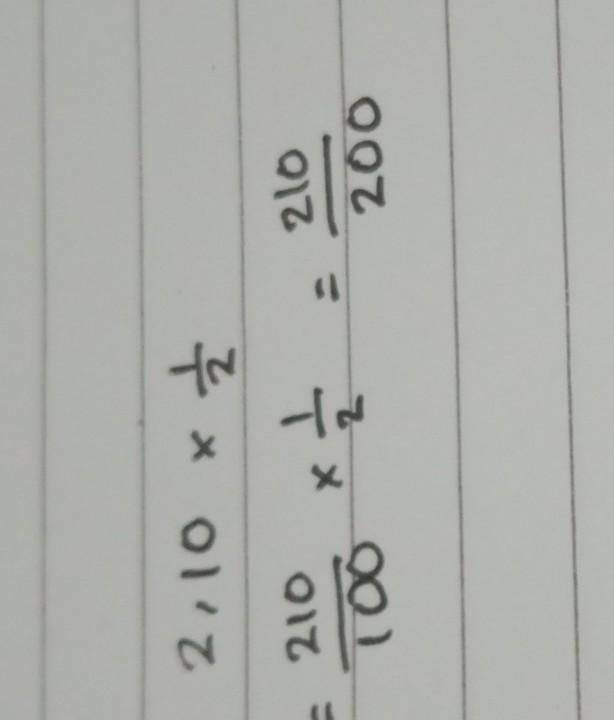 2,10 × 1/2
= 210/100 × 1/2 = 210/200